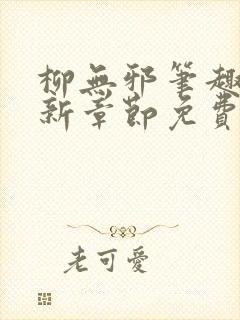 柳無邪筆趣
新章節免費
老可愛